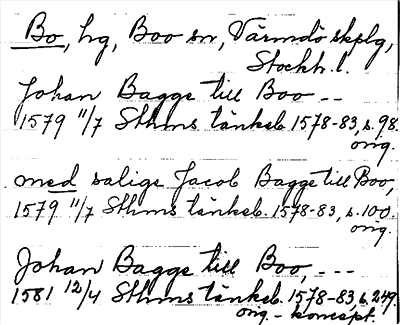 Bo, hg, Boo sn, Värmdö skplg,
Stockh. l.
Johan Bagge till Boo --
1579 11/7 Sthms tänkeb. 1578-83, s. 98.
orig.
med salige Jacob Bagge till Boo,
1579 11/7 Sthms tänkeb. 1578-83, s. 100.
orig.
Johan Bagge till Boo, ---
1581 12/4 Sthms tänkeb. 1578-83, s. 249.
orig. - koncept.